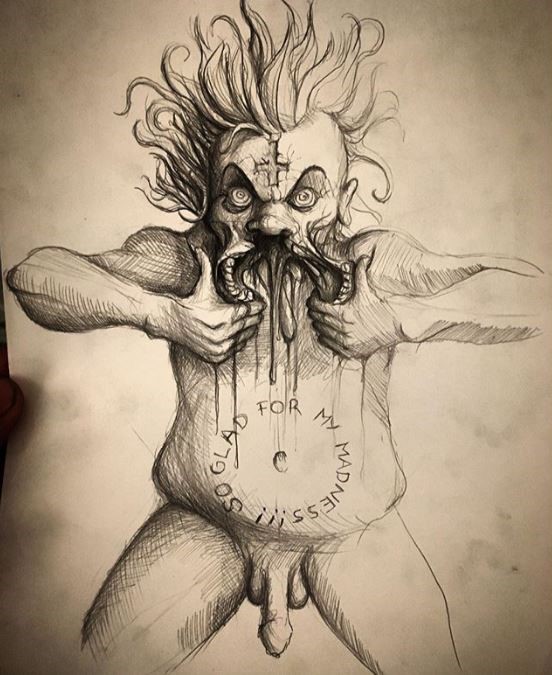 SO GLAD FOR MY MADNESS!!!